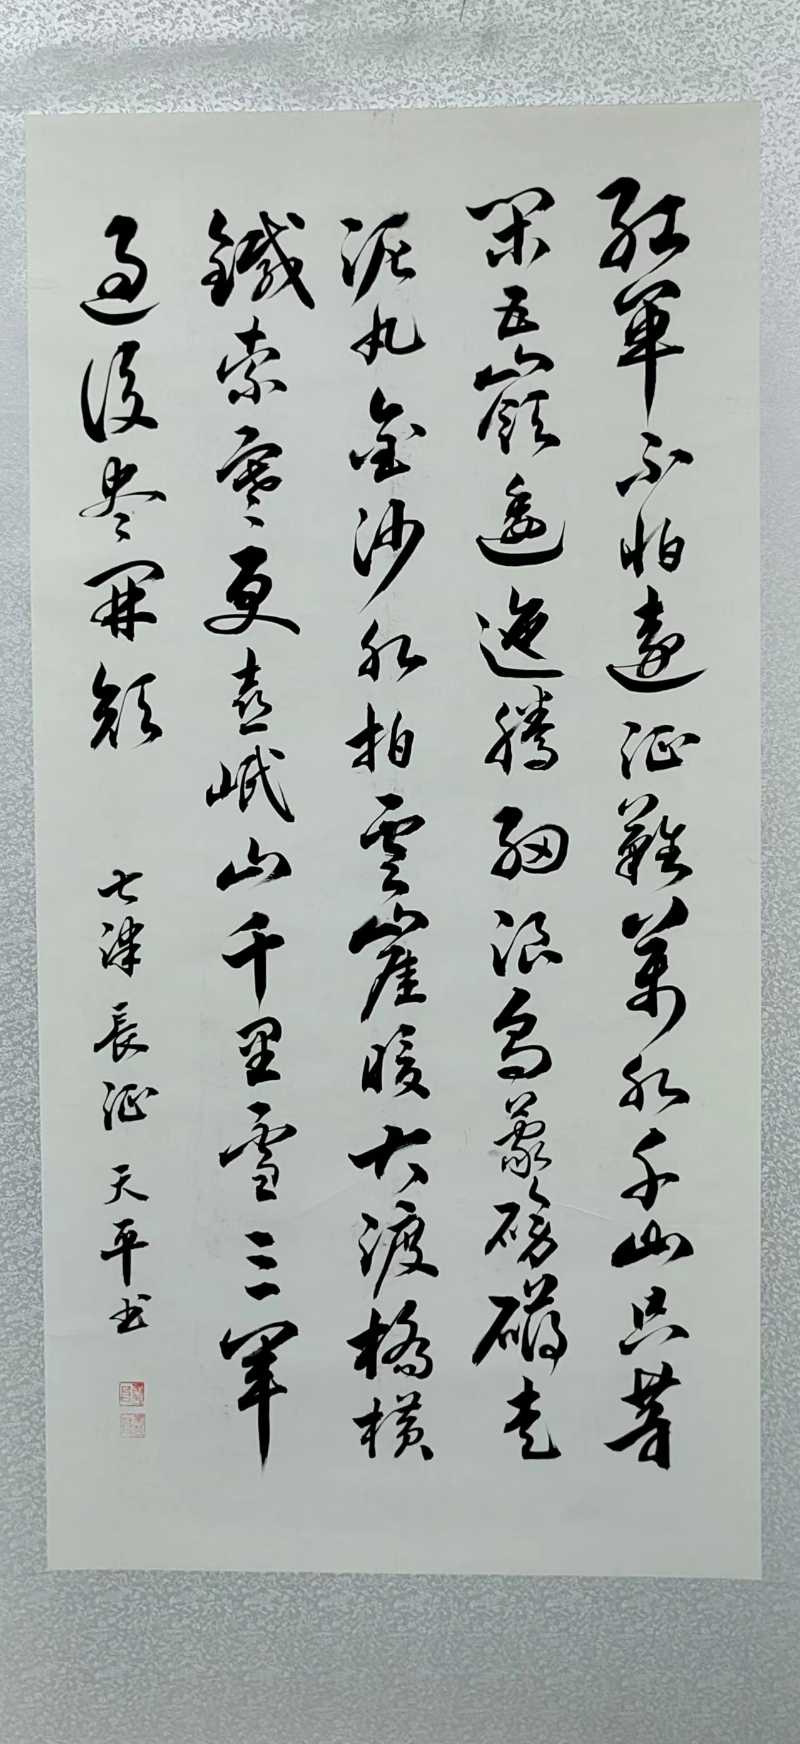 紅軍不怕遠征難萬水千山只等
閑五嶺逶迤騰細浪烏蒙磅礴走
泥丸金沙水拍雲崖暖大渡橋橫
鐵索寒更喜岷山千里雪三軍
過後尽開顏
七律長征 天平书